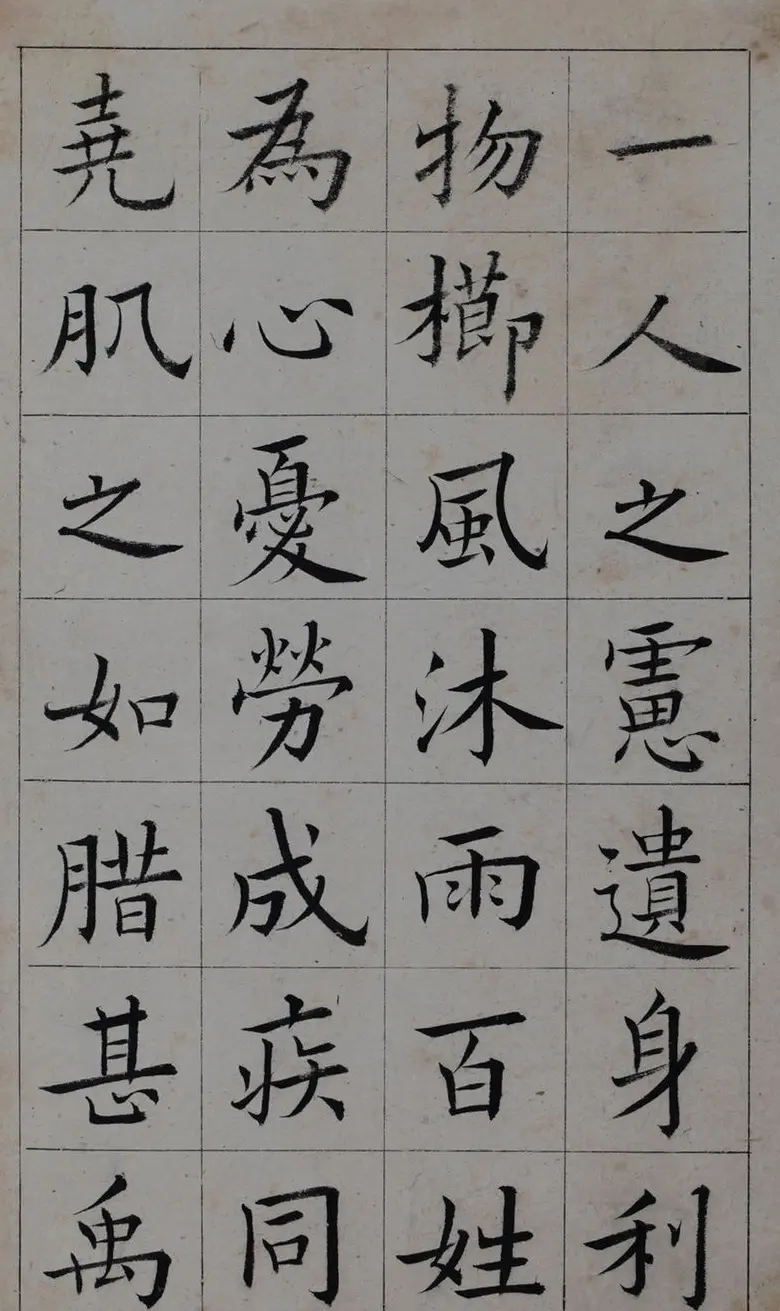 一人之慮遺身利
物櫛風沐雨百姓
為心憂勞成疾同
堯肌之如腊甚禹